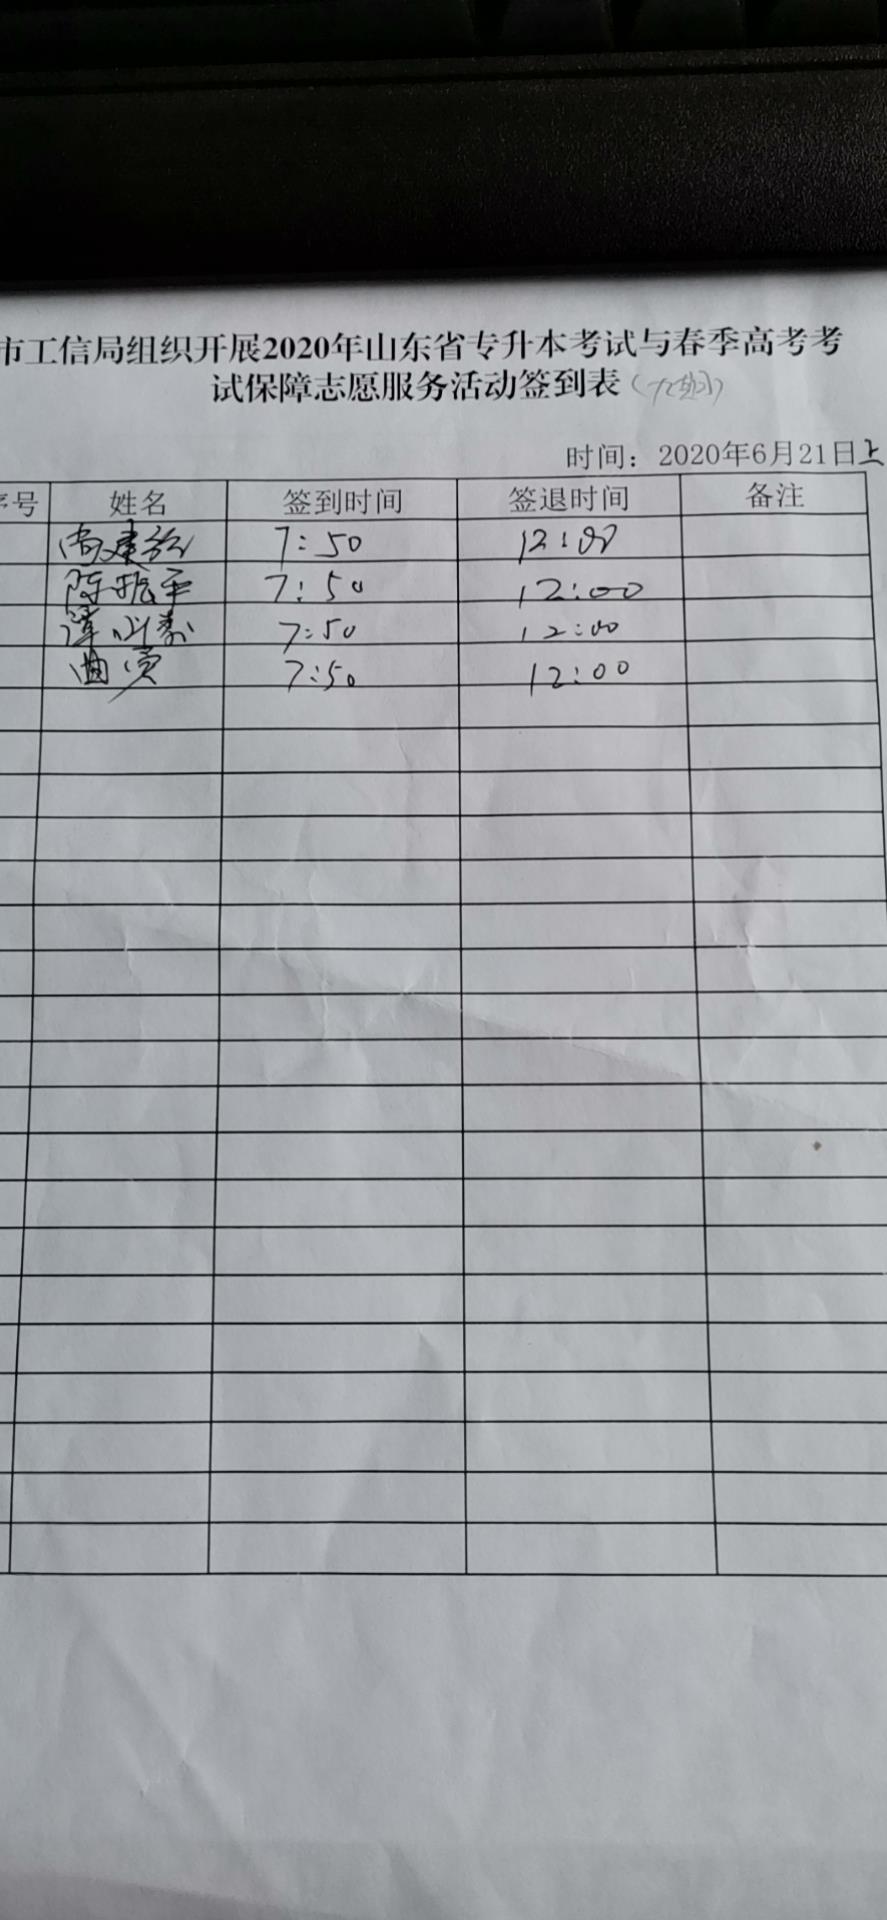 市工信局组织开展2020年山东省专升本考试与春季高考考
试保障志愿服务活动签到表
时间：2020年6月21日上
序号 姓名 签到时间 签退时间 备注
7:50 12:00
陈振 7:50 12:00
7:50 12:00
曲 7:50 12:00